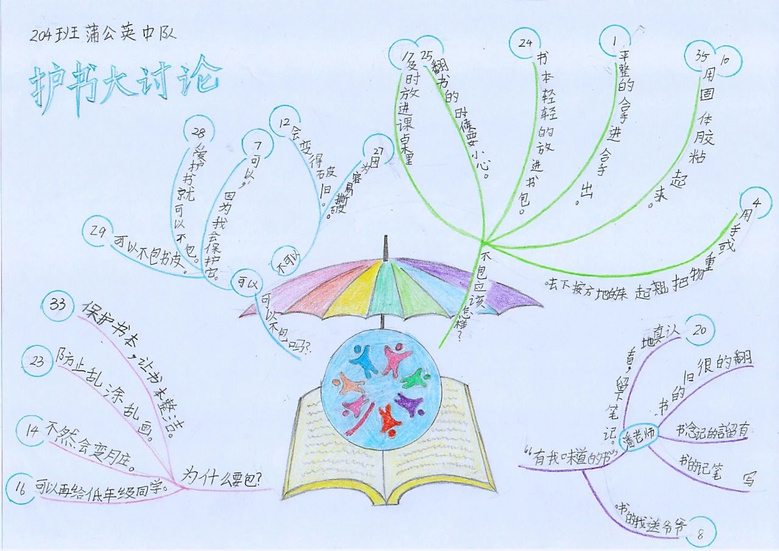 204班蒲公英中队
护书大讨论
可以不包吗?
可以
29 可以不包书皮。
28 爱护书就可以不包。
7 可以,因为我会保护它。
不可以
12 会变得破旧。
27 因为容易撕破
不包应该怎样?
17 及时放进课桌里
25 翻书的时候要小心。
24 书本轻轻的放进书包。
1 平整的拿进拿出。
35 10 用固体胶粘起来。
4 用手或重物把翘起来的地方按下去。
为什么要包?
33 保护书本,让书本整洁。
23 防止乱涂乱画。
14 不然会变月应。
16 可以再给低年级同学。
“有我味道的书”
20 认真地看,留下笔记。
8 爷爷送我的书。
潘老师
翻的很旧的书
有留言的纪念书
写笔记的书